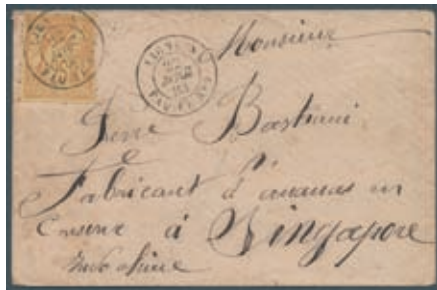 Monsieur
Pierre Bastiani
Fabricant d'ananas en
Conserve à Singapore
Indo Chine